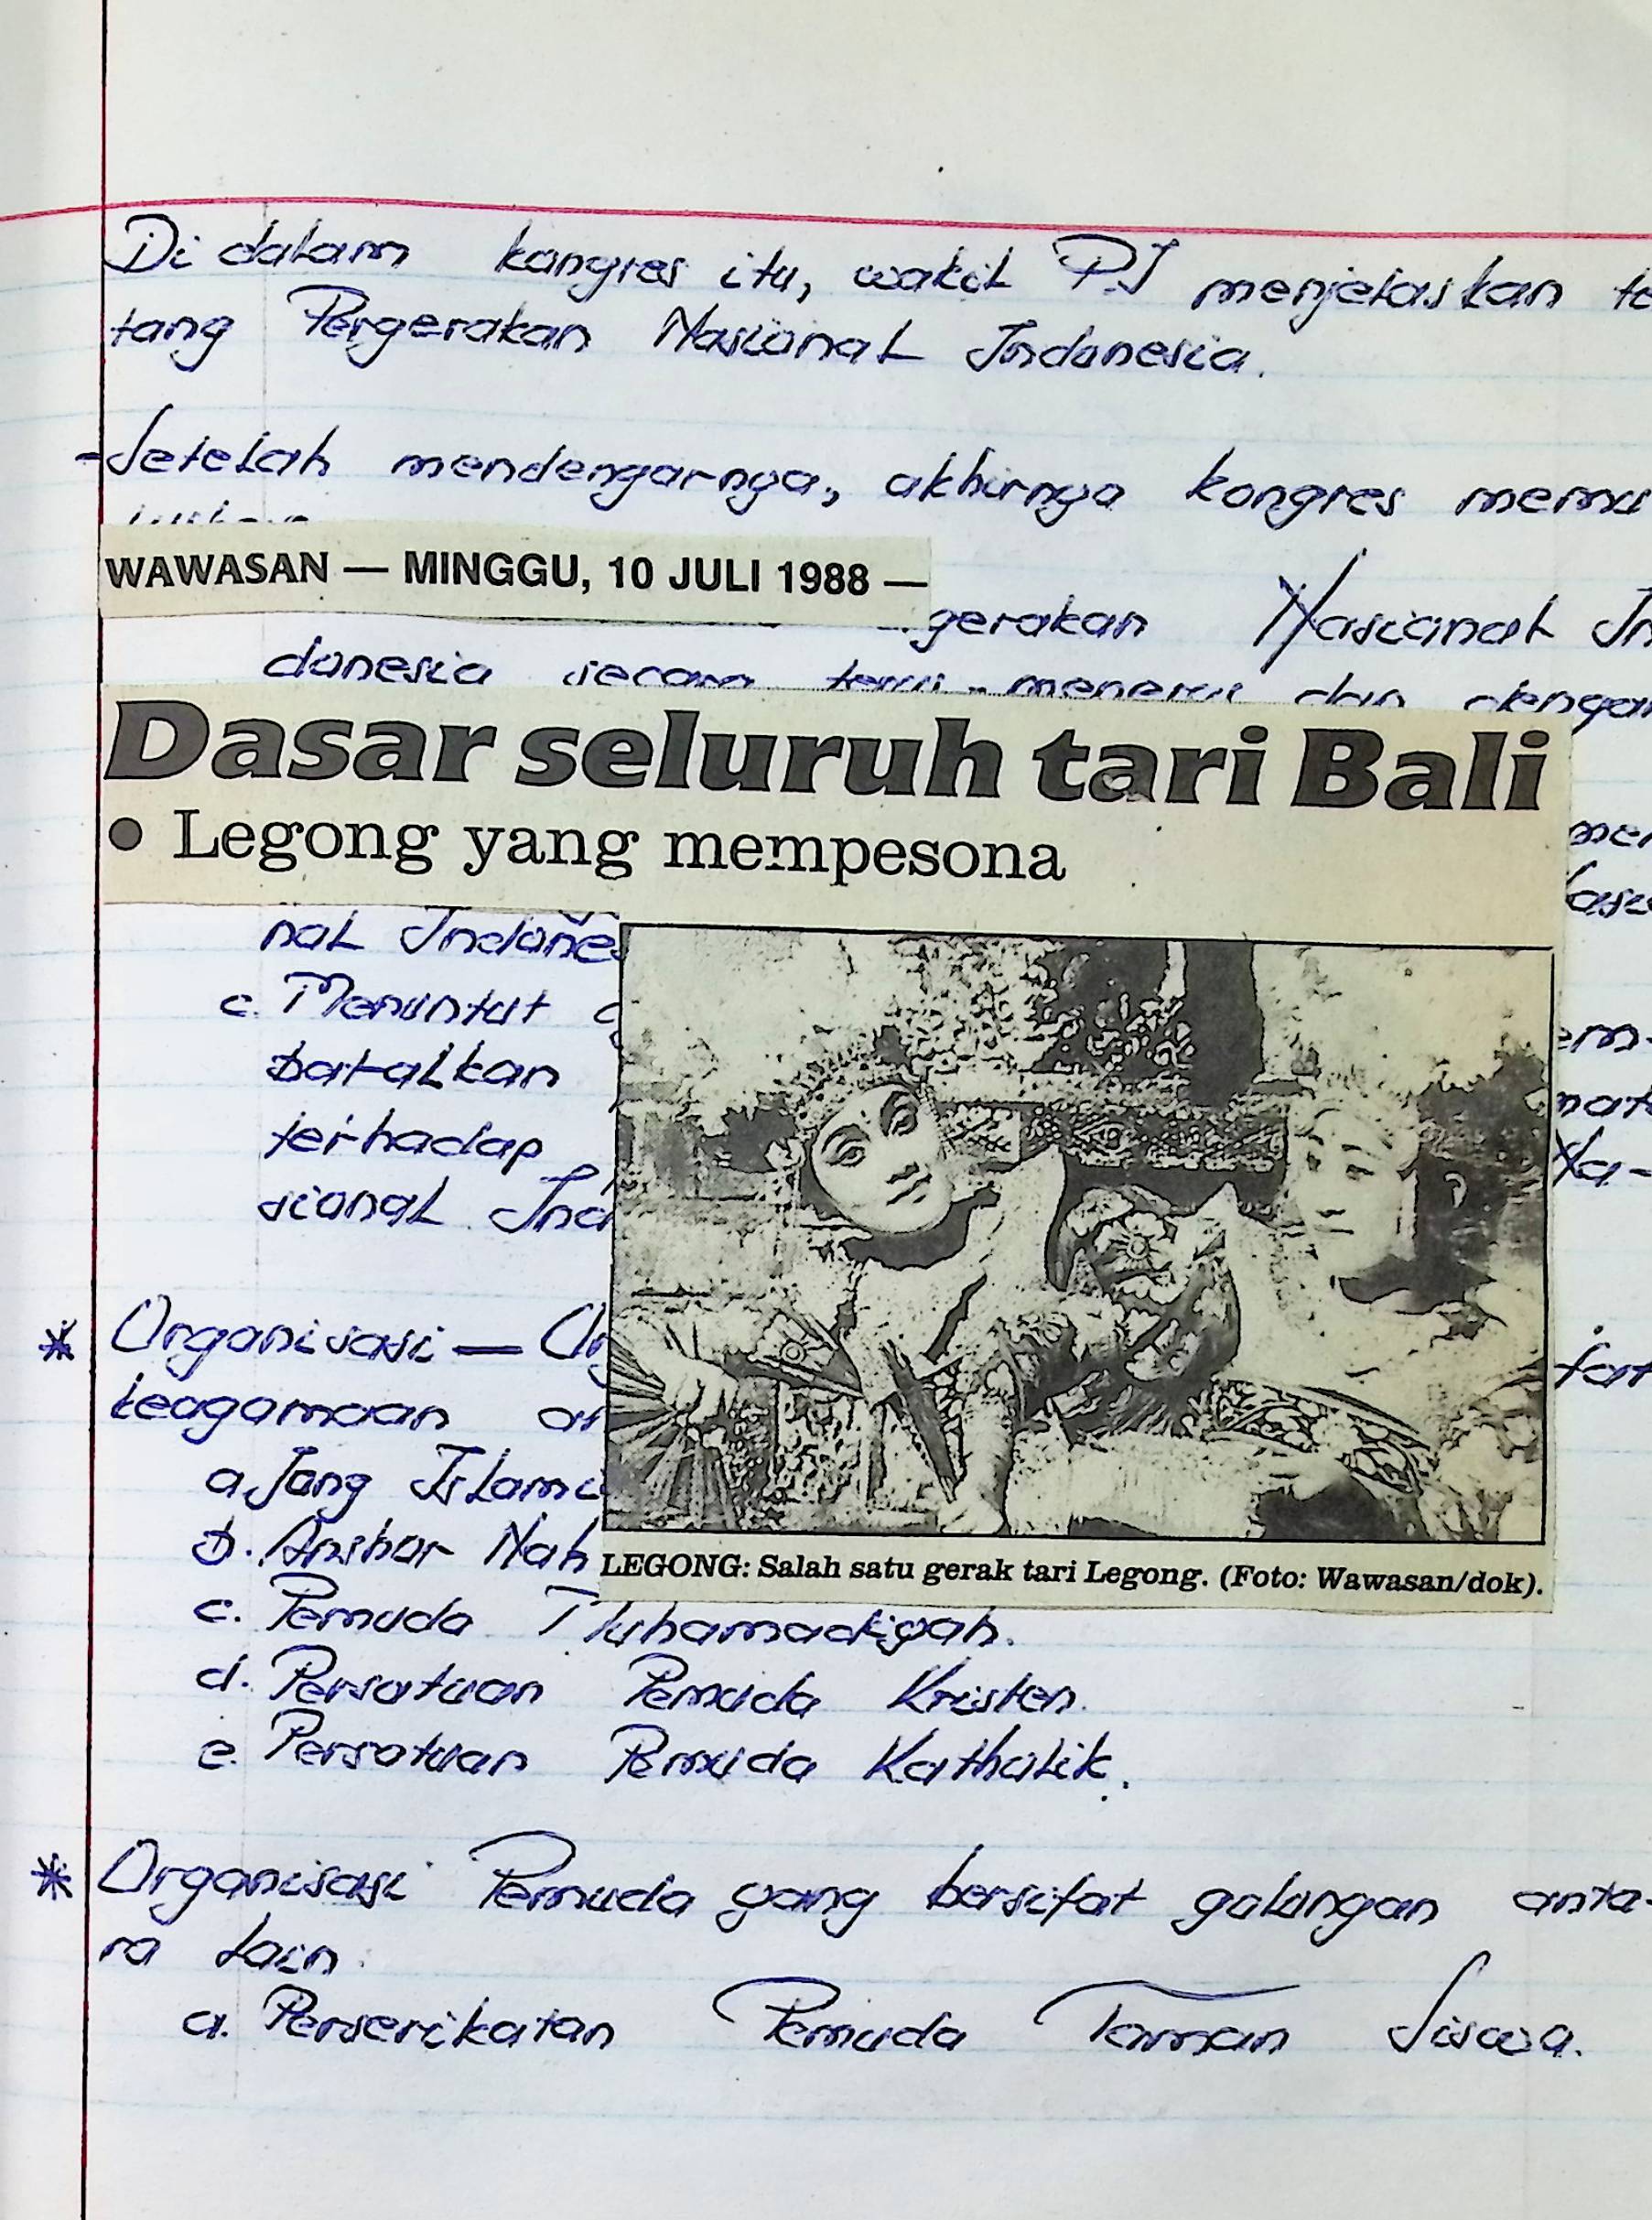 Di dalam kongres itu, wakil PI menjelaskan te
tang Pergerakan Nasional Indonesia.
-Setelah mendengarnya, akhirnya kongres memu
WAWASAN — MINGGU, 10 JULI 1988 —
gerakan Nasional In
donesia secara terus-menerus dan dengan
Dasar seluruh tari Bali
• Legong yang mempesona
nal Indones
c. Menuntut
batalkan
terhadap
sional Ind
* Organisasi — Or
keagamaan
a. Jong Islami
b. Anshor Nah
LEGONG: Salah satu gerak tari Legong. (Foto: Wawasan/dok).
c. Pemuda Muhamadiyah.
d. Persatuan Pemuda Kristen.
e. Persatuan Pemuda Katholik.
* Organisasi Pemuda yang bersifat golongan anta-
ra lain.
a. Perserikatan Pemuda Taman Siswa.